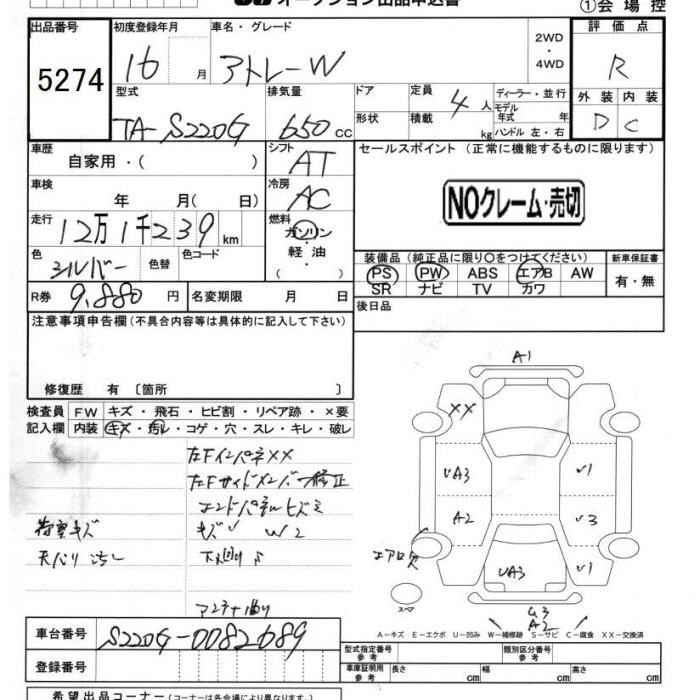 オークション出品申込書
①会場控
出品番号
5274
初度登録年月
16 月
車名・グレード
アトレーW
2WD
・
4WD
評価点
R
外装 内装
D C
型式
TA-S220G
排気量
650 cc
ドア
形状
定員
4 人
積載
kg
ディーラー・並行
モデル
年式 年
ハンドル 左・右
車歴
自家用・( )
シフト
AT
セールスポイント (正常に機能するものに限ります)
NOクレーム・売切
車検
年 月( 日)
冷房
AC
走行
12万1千239 km
燃料
ガソリン
・
軽油
( )
色
シルバー
色替
色コード
装備品 (純正品に限り○をつけてください)
PS PW ABS エアB AW
SR ナビ TV カワ
新車保証書
有・無
R券 9,880 円
名変期限 月 日
後日品
注意事項申告欄 (不具合内容等は具体的に記入して下さい)
修復歴 有 〔箇所 〕
検査員
記入欄
FW キズ・飛石・ヒビ割・リペア跡・×要
内装 キズ・汚レ・コゲ・穴・スレ・キレ・破レ
左FインパネXX
左Fサイドメンバー修正
エンドパネルヒズミ
荷室キズ
キズU W2
天バリ汚レ
下廻りS
アンテナ曲り
A1
XX
UA3
A2
U1
U3
U1
エアロ欠
UA3
U3
A2
スペア
A-キズ E-エクボ U-凹み W-補修跡 S-サビ C-腐食 XX-交換済
車台番号
S220G-0082689
登録番号
型式指定番号
参考
類別区分番号
参考
車庫証明用
参考
長さ cm
幅 cm
高さ cm
希望出品コーナー (コーナーは各会場により異なります。)